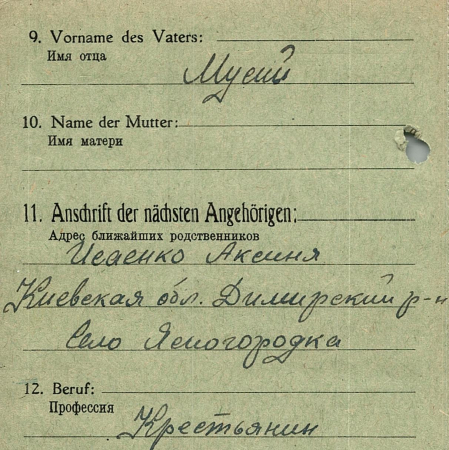 9. Vorname des Vaters:
Имя отца
Мусий
10. Name der Mutter:
Имя матери
11. Anschrift der nächsten Angehörigen:
Адрес ближайших родственников
Исаенко Аксиня
Киевская обл. Димирский р-н
Село Ясногородка
12. Beruf:
Профессия
Крестьянин